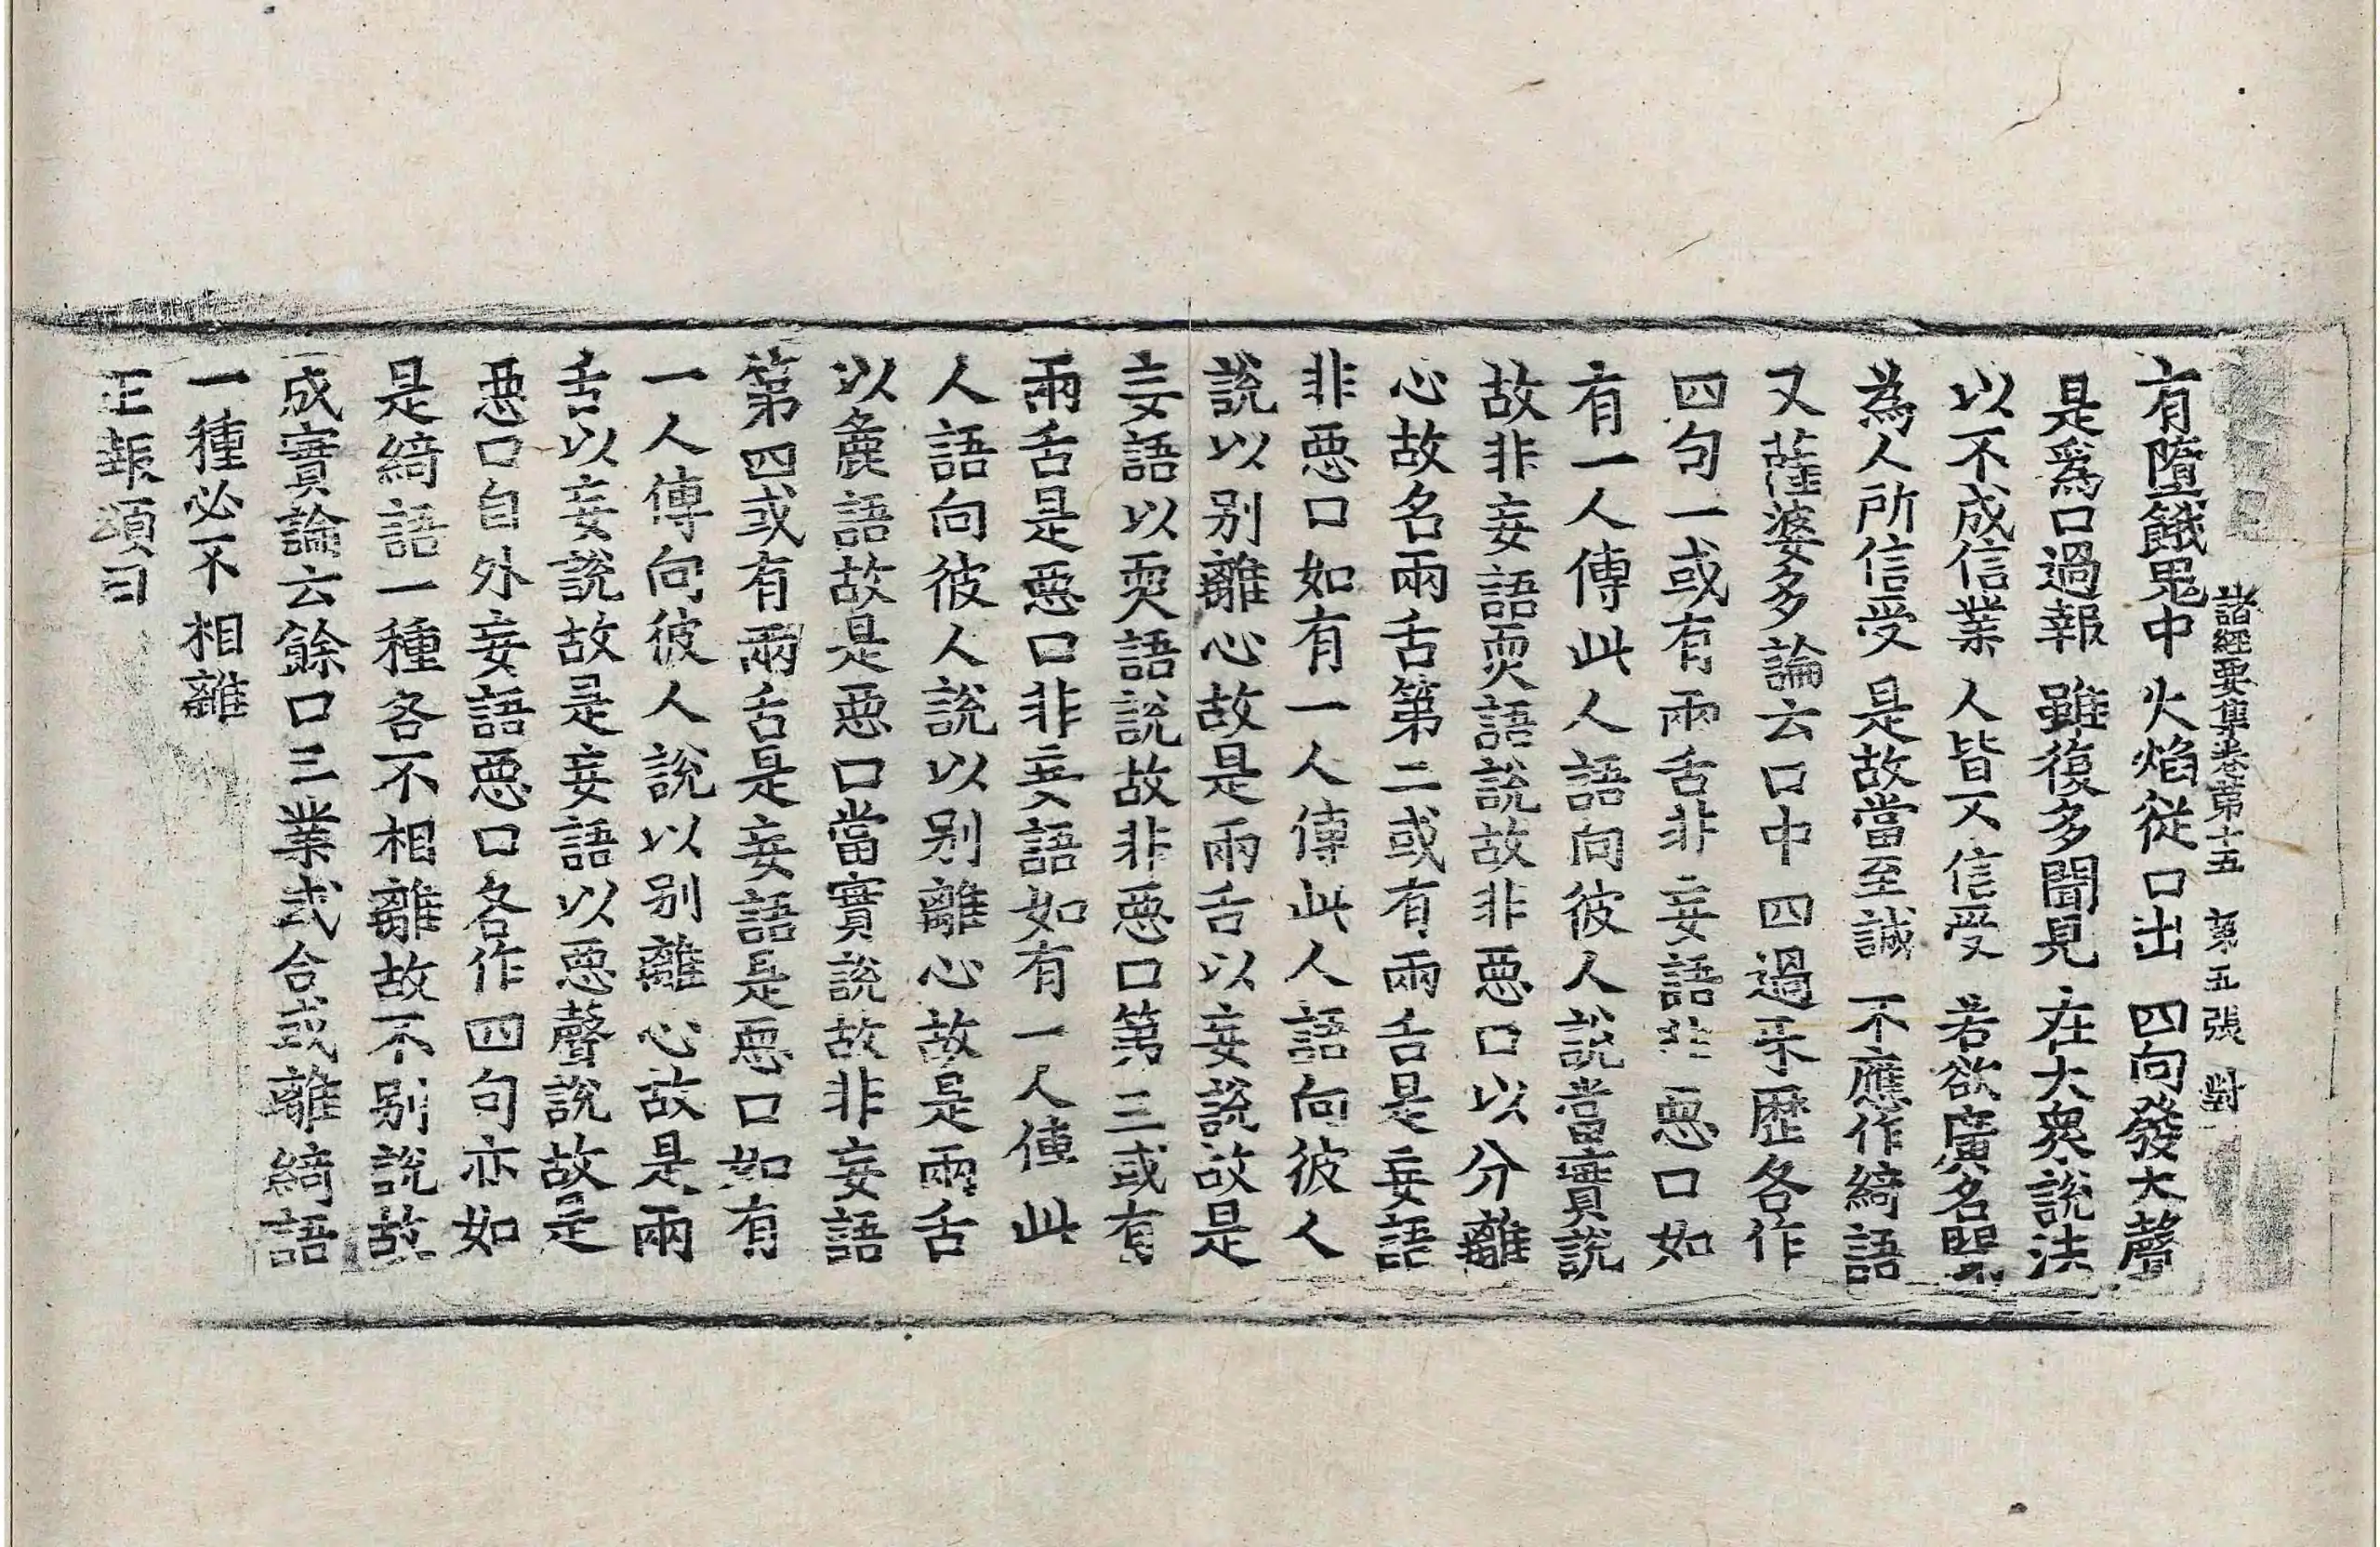 諸經要集卷第十五 第五張 對
有墮餓鬼中 火焰從口出 四向發大聲
是爲口過報 雖復多聞見 在大衆說法
以不成信業 人皆不信受 若欲廣名聞
為人所信受 是故當至誠 不應作綺語
又薩婆多論云口中四過乎歷各作
四句一或有兩舌非妄語非惡口如
有一人傳此人語向彼人說當實說
故非妄語耎語說故非惡口以分離
心故名兩舌第二或有兩舌是妄語
非惡口如有一人傳此人語向彼人
說以别離心故是兩舌以妄說故是
妄語以耎語說故非惡口第三或有
兩舌是惡口非妄語如有一人傳此
人語向彼人說以别離心故是兩舌
以麁語故是惡口當實說故非妄語
第四或有兩舌是妄語是惡口如有
一人傳向彼人說以别離心故是兩
舌以妄說故是妄語以惡聲說故是
惡口自外妄語惡口各作四句亦如
是綺語一種各不相離故不别說故
成實論云餘口三業或合或離綺語
一種必不相離
正報頌曰